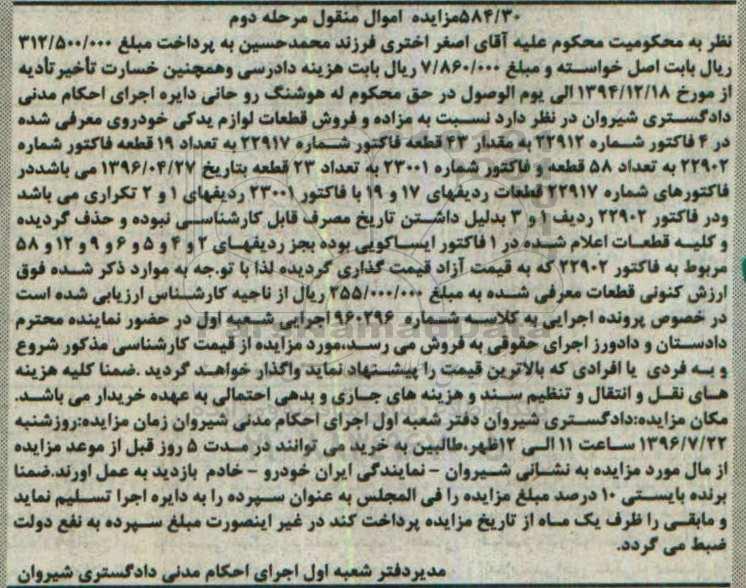 ۵۸۴/۳۰مزایده اموال منقول مرحله دوم
نظر به محکومیت محکوم علیه آقای اصغر اختری فرزند محمدحسین به پرداخت مبلغ ۳۱۲/۵۰۰/۰۰۰
ریال بابت اصل خواسته و مبلغ ۷/۸۶۰/۰۰۰ ریال بابت هزینه دادرسی وهمچنین خسارت تأخیرتأدیه
از مورخ ۱۳۹۴/۱۲/۱۸ الی یوم الوصول در حق محکوم له هوشنگ رو حانی دایره اجرای احکام مدنی
دادگستری شیروان در نظر دارد نسبت به مزاده و فروش قطعات لوازم یدکی خودروی معرفی شده
در ۴ فاکتور شماره ۲۲۹۱۲ به مقدار ۲۳ قطعه فاکتور شماره ۲۲۹۱۷ به تعداد ۱۹ قطعه فاکتور شماره
۲۲۹۰۲ به تعداد ۵۸ قطعه و فاکتور شماره ۲۳۰۰۱ به تعداد ۲۳ قطعه بتاریخ ۱۳۹۶/۰۴/۲۷ می باشددر
فاکتورهای شماره ۲۲۹۱۷ قطعات ردیفهای ۱۷ و ۱۹ با فاکتور ۲۳۰۰۱ ردیفهای ۱ و ۲ تکراری می باشد
ودر فاکتور ۲۲۹۰۲ ردیف ۱ و ۳ بدلیل داشتن تاریخ مصرف قابل کارشناسی نبوده و حذف گردیده
و کلیه قطعات اعلام شده در ۱ فاکتور ایساکویی بوده بجز ردیفهای ۲ و ۴ و ۵ و ۶ و ۹ و ۱۲ و ۵۸
مربوط به فاکتور ۲۲۹۰۲ که به قیمت آزاد قیمت گذاری گردیده لذا با تو.جه به موارد ذکر شده فوق
ارزش کنونی قطعات معرفی شده به مبلغ ۲۵۵/۰۰۰/۰۰۰ ریال از ناحیه کارشناس ارزیابی شده است
در خصوص پرونده اجرایی به کلاسه شماره ۹۶۰۲۹۶ اجرایی شعبه اول در حضور نماینده محترم
دادستان و دادورز اجرای حقوقی به فروش می رسد،مورد مزایده از قیمت کارشناسی مذکور شروع
و به فردی یا افرادی که بالاترین قیمت را پیشنهاد نماید واگذار خواهد گردید .ضمنا کلیه هزینه
های نقل و انتقال و تنظیم سند و هزینه های جاری و بدهی احتمالی به عهده خریدار می باشد.
مکان مزایده:دادگستری شیروان دفتر شعبه اول اجرای احکام مدنی شیروان زمان مزایده:روزشنبه
۱۳۹۶/۷/۲۲ ساعت ۱۱ الی ۱۲ظهر،طالبین به خرید می توانند در مدت ۵ روز قبل از موعد مزایده
از مال مورد مزایده به نشانی شیروان - نمایندگی ایران خودرو - خادم بازدید به عمل اورند.ضمنا
برنده بایستی ۱۰ درصد مبلغ مزایده را فی المجلس به عنوان سپرده را به دایره اجرا تسلیم نماید
و مابقی را ظرف یک ماه از تاریخ مزایده پرداخت کند در غیر اینصورت مبلغ سپرده به نفع دولت
ضبط می گردد.
مدیردفتر شعبه اول اجرای احکام مدنی دادگستری شیروان